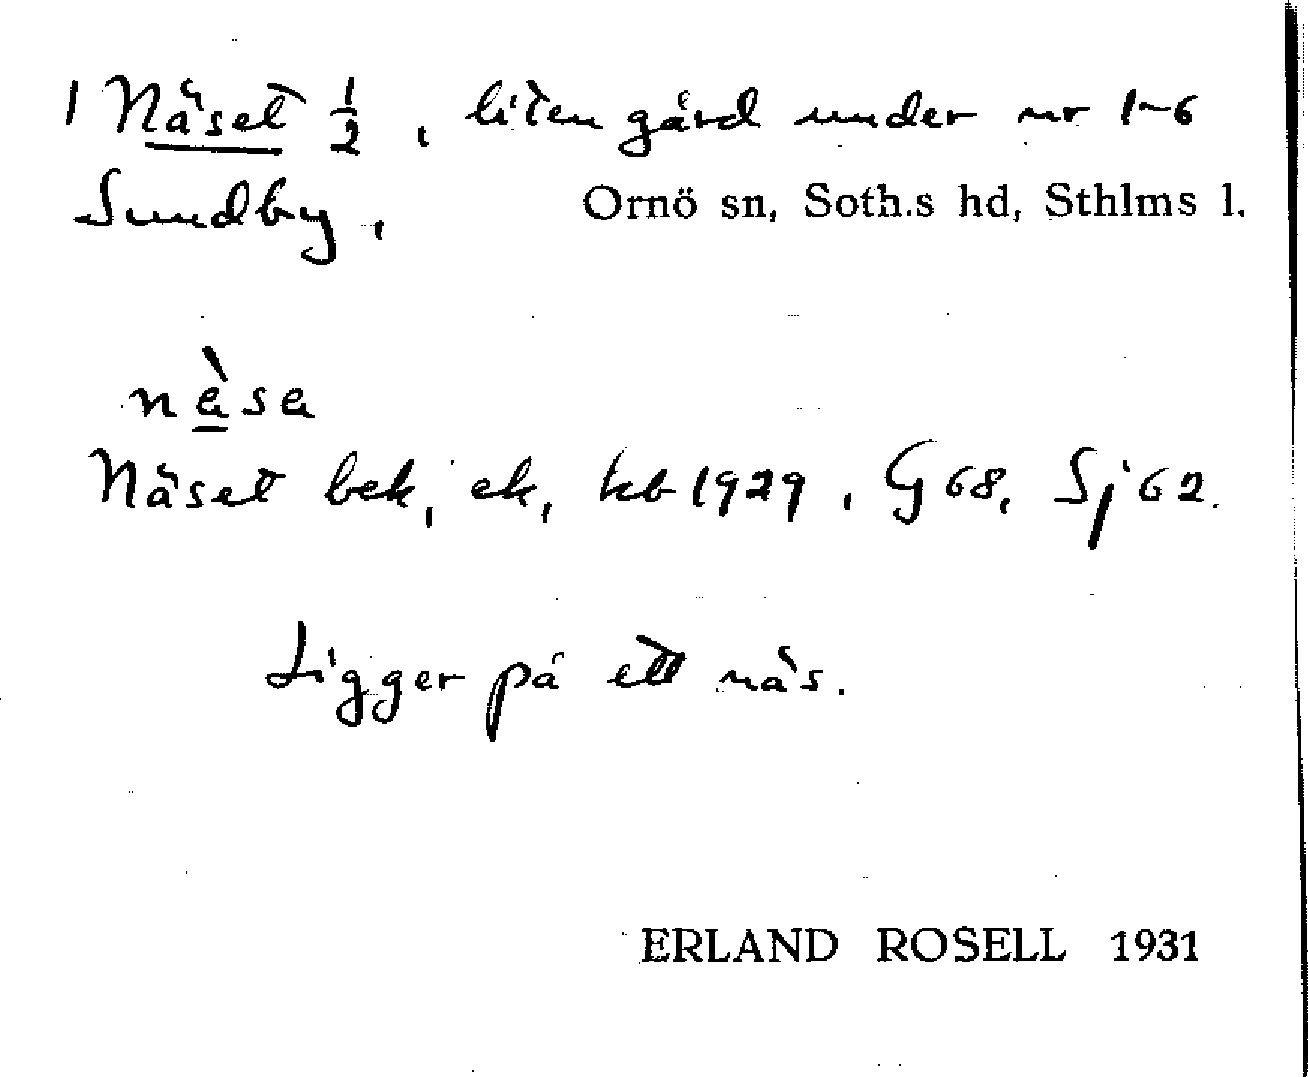 1 Näset ½, liten gård under nr 1-6
Sundby, Ornö sn, Soth.s hd, Sthlms l.
nɛ̀sa
Näset bek, ek, kb 1929, G 68, Sj 62.
Ligger på ett näs.
ERLAND ROSELL 1931